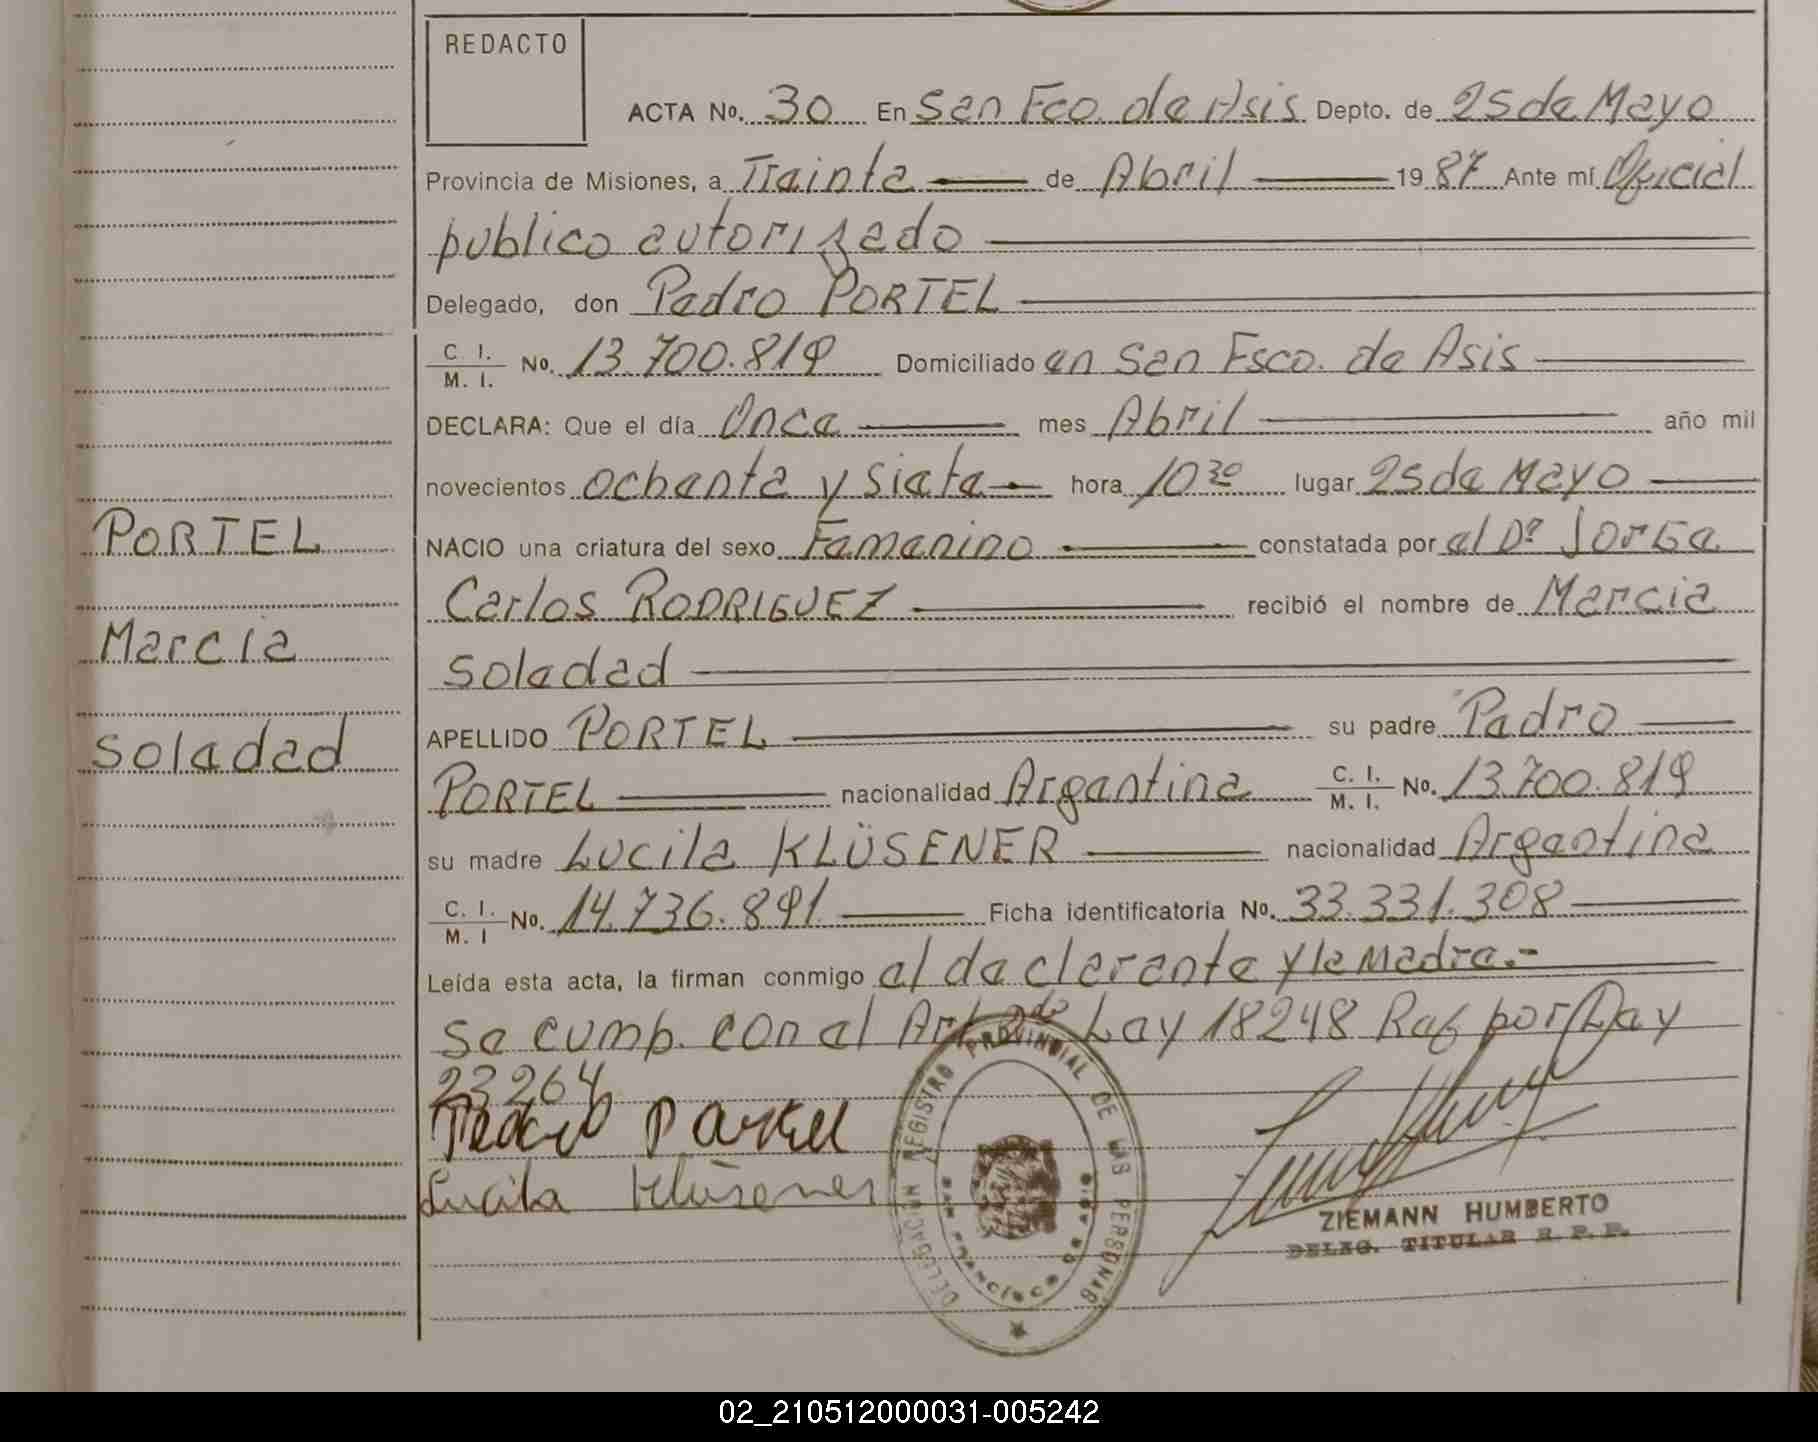 REDACTO
ACTA No. 30 En San Fco. de Asis Depto. de 25 de Mayo
Provincia de Misiones, a Treinta de Abril 1987 Ante mí Oficial
publico autorizado
Delegado, don Pedro PORTEL
C. I. / M. I. No. 13.700.819 Domiciliado en San Fsco. de Asis
DECLARA: Que el día Once mes Abril año mil
novecientos ochenta y siete hora 10 30 lugar 25 de Mayo
PORTEL
NACIO una criatura del sexo Femenino constatada por el Dr Jorge
Carlos RODRIGUEZ recibió el nombre de Marcia
Marcia
Soledad
APELLIDO PORTEL su padre Pedro
Soledad
PORTEL nacionalidad Argentina C. I. / M. I. No. 13.700.819
su madre Lucila KLÜSENER nacionalidad Argentina
C. I. / M. I No. 14.736.891 Ficha identificatoria No. 33.331.308
Leída esta acta, la firman conmigo el declarante y la Madre.-
Se cump. con el Art. 2do Ley 18248 Ref por Ley
23264
Pedro Portel
Lucila Klüsener
DELEGACION REGISTRO PROVINCIAL DE LAS PERSONAS
SAN FRANCISCO DE ASIS
ZIEMANN HUMBERTO
DELEG. TITULAR R. P. P.
02_210512000031-005242